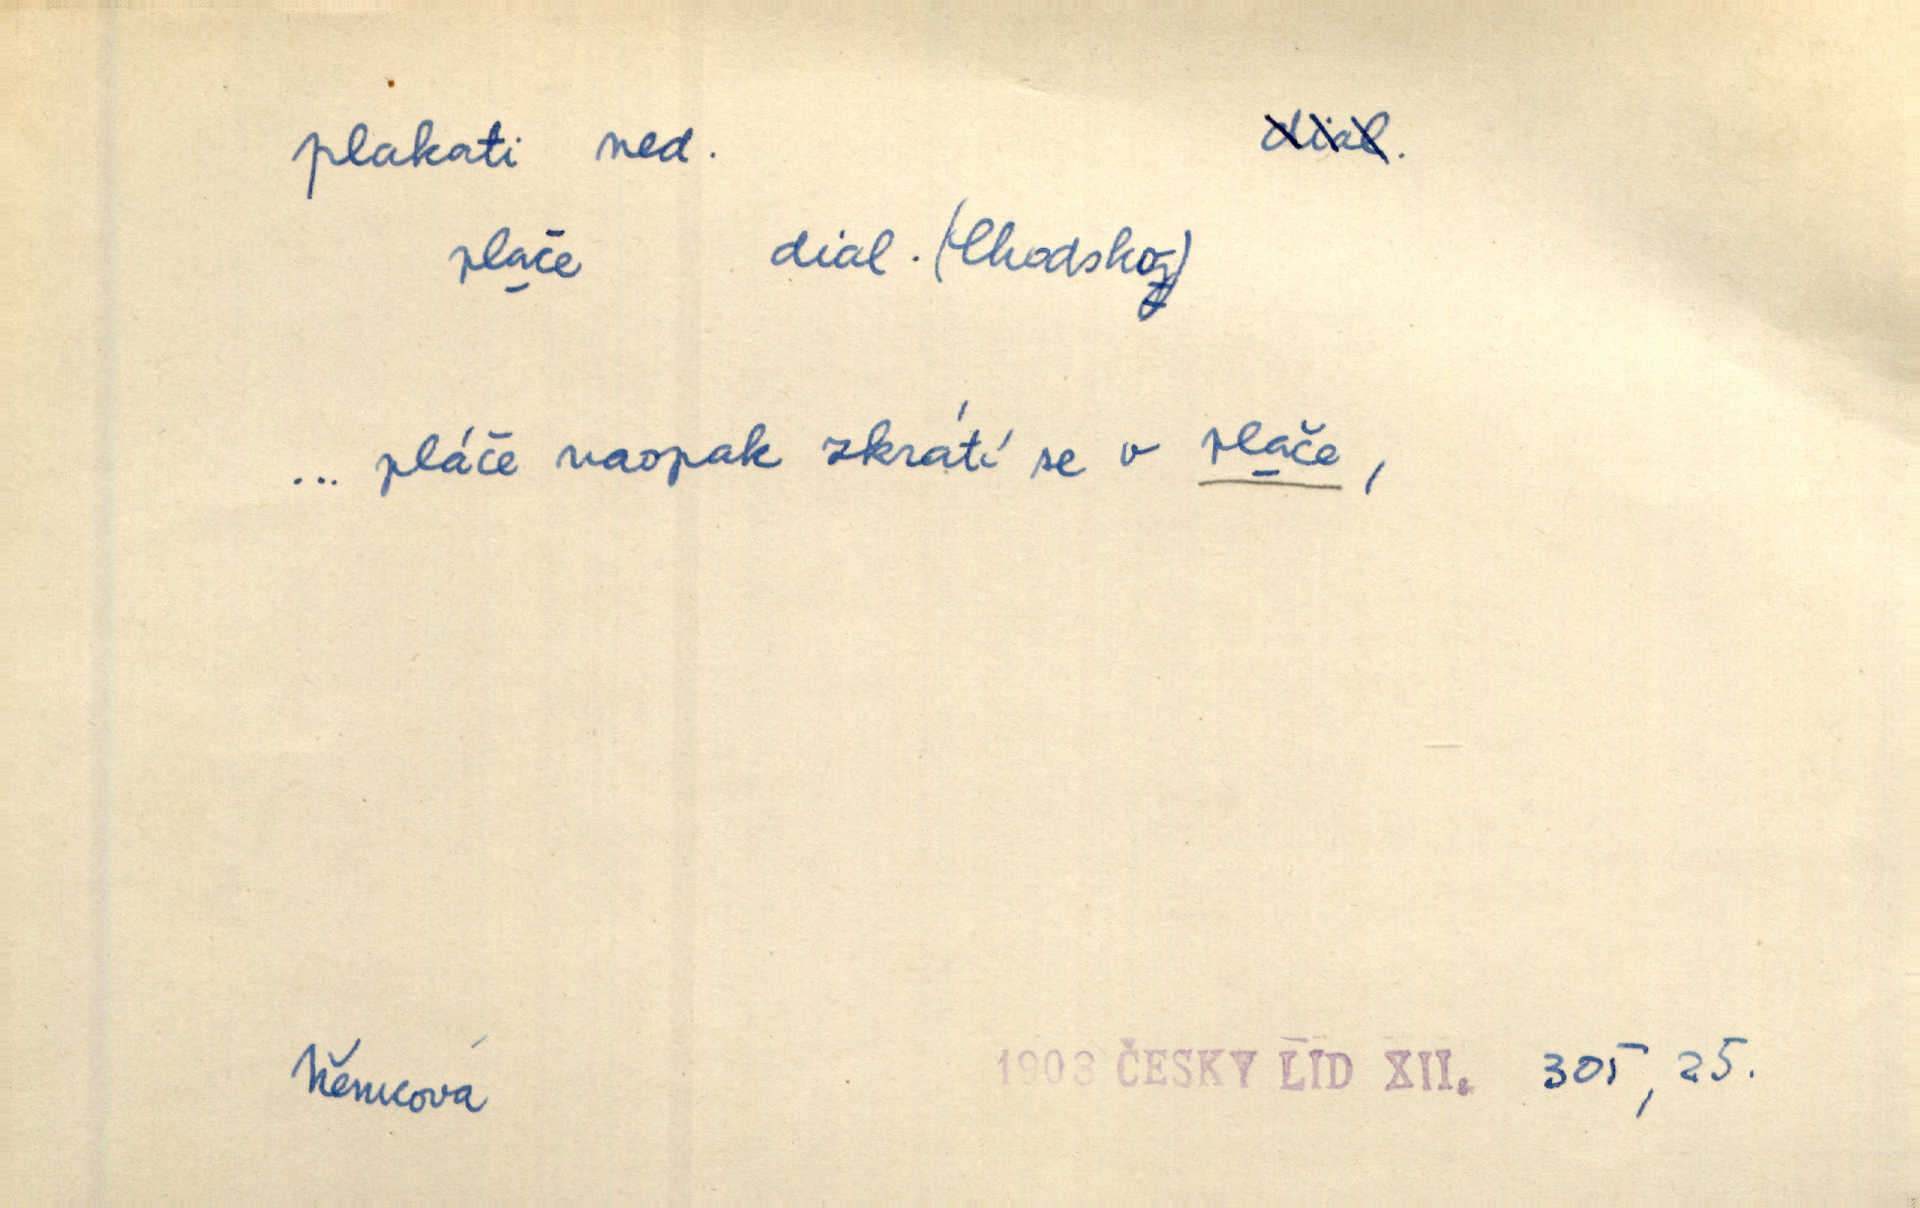 plakati ned. dial.
plače dial. (Chodsko)
... pláče naopak zkrátí se v plače,
Němcová 1903 ČESKY LID XII. 305, 25.